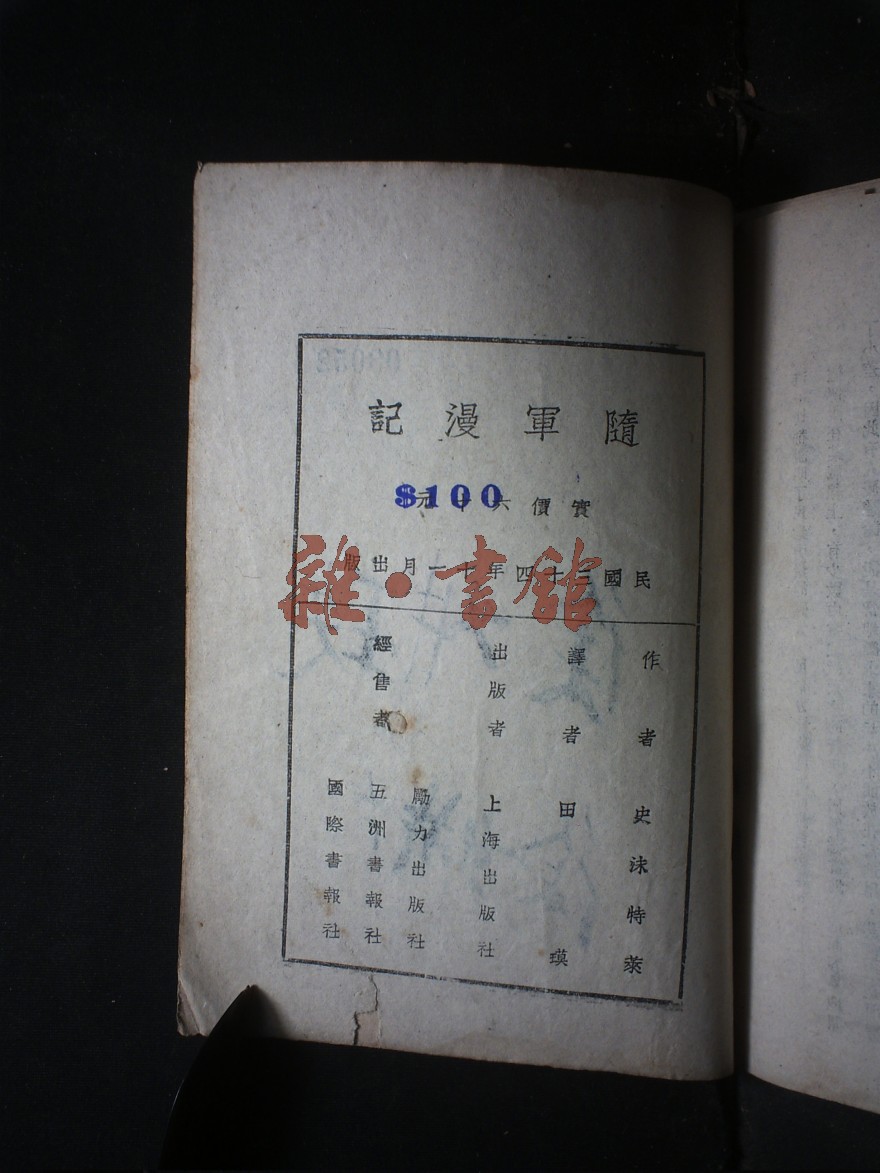 隨軍漫記
實價六十元
$100
民國三十四年十一月出版
作者 史沫特萊
譯者 田瑛
出版者 上海出版社
經售者
勵力出版社
五洲書報社
國際書報社
雜·書館